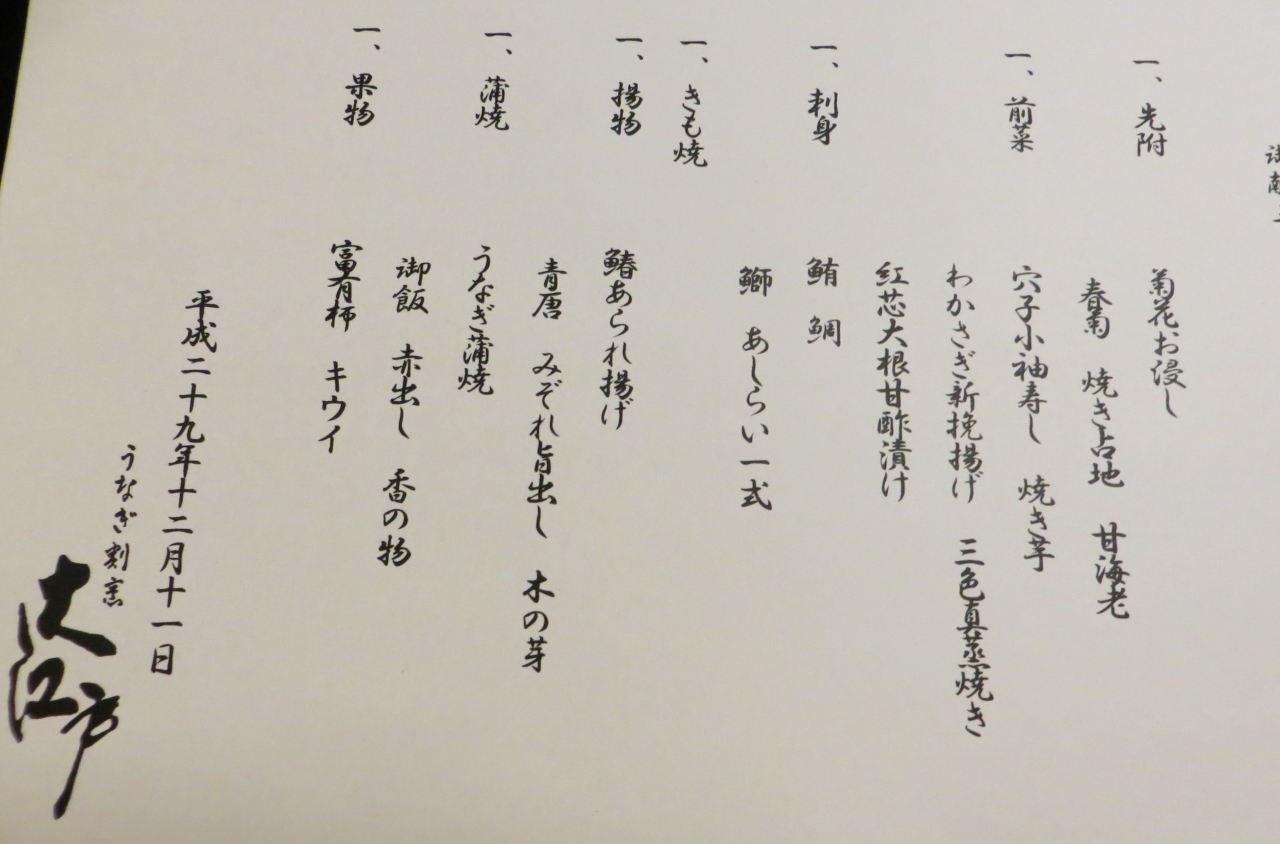 一、先附
菊花お浸し
春菊 焼き占地 甘海老
一、前菜
穴子小袖寿し 焼き芋
わかさぎ新挽揚げ 三色真蒸焼き
紅芯大根甘酢漬け
一、刺身
鮪 鯛
鰤 あしらい一式
一、きも焼
一、揚物
鰆あられ揚げ
青唐 みぞれ旨出し 木の芽
一、蒲焼
うなぎ蒲焼
御飯 赤出し 香の物
一、果物
富有柿 キウイ
平成二十九年十二月十一日
うなぎ割烹
大江戸